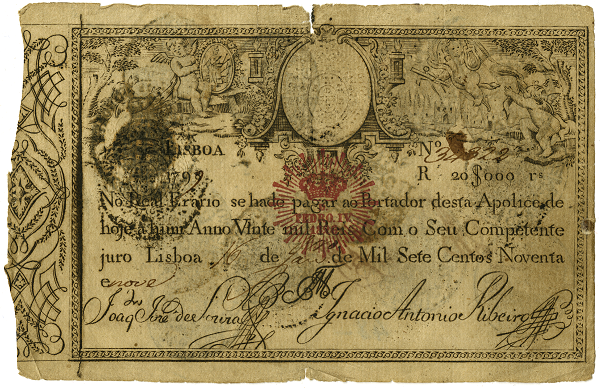 LISBOA Nº
1799 R 20$000 rs
No Real Erario se hade pagar ao Portador desta Apolice de
hoje a hum Anno Vinte mil Reis Com o Seu Competente
juro Lisboa de de Mil Sete Centos Noventa
e nove
PEDRO IV
Joaq. José de Souza Ignacio Antonio Ribeiro